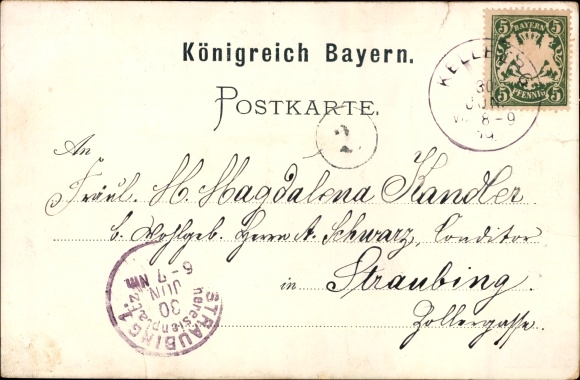 Königreich Bayern.
POSTKARTE.
5 BAYERN 5
5 PFENNIG 5
30
JUN
8-9
2
An
Fräul. M. Magdalena Kandler
b. Wohlgeb. Herrn A. Schwarz, Conditor
in Straubing.
Zollergasse.
STRAUBING 1.
30
JUN
6-7 Nm